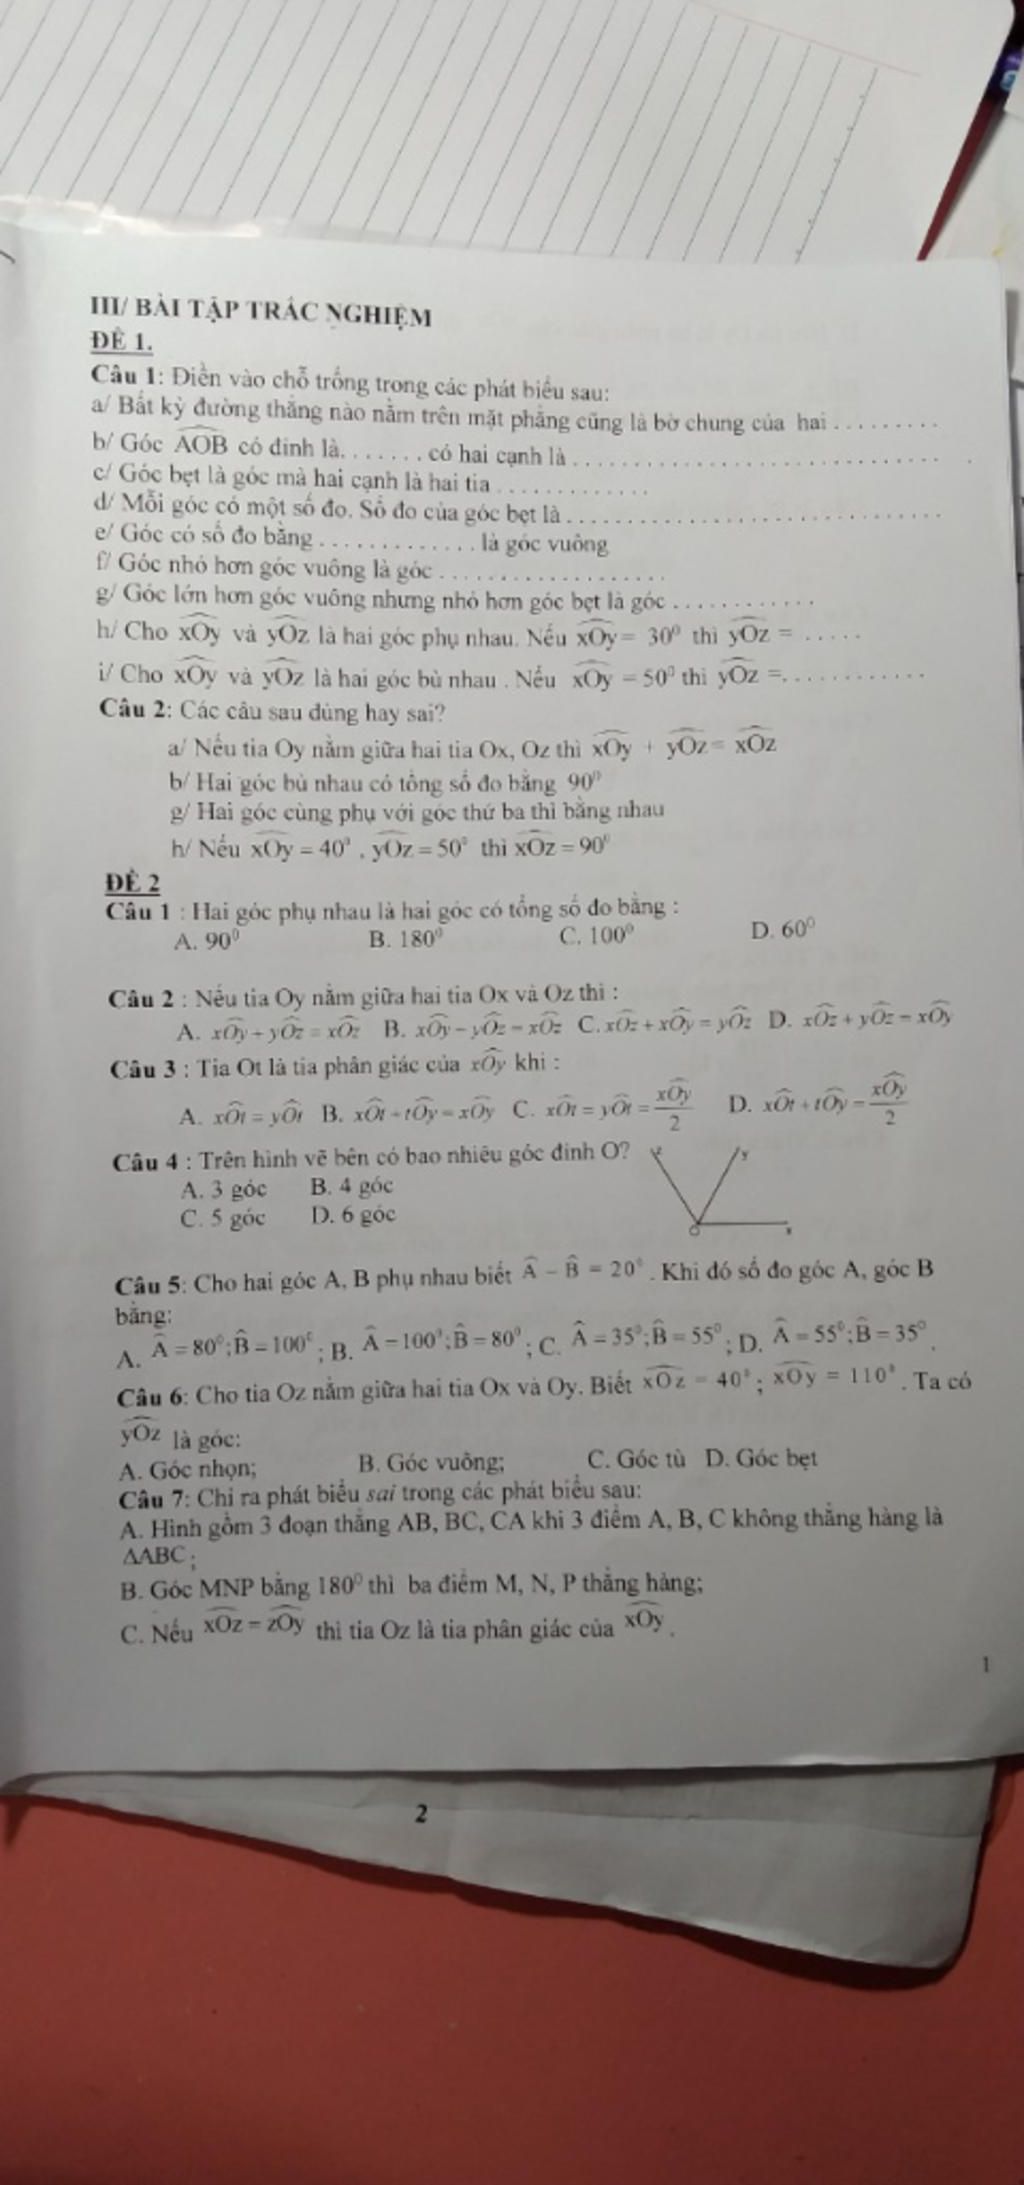 III/ BÀI TẬP TRẮC NGHIỆM
ĐỀ 1.
Câu 1: Điền vào chỗ trống trong các phát biểu sau:
a/ Bất kỳ đường thẳng nào nằm trên mặt phẳng cũng là bờ chung của hai . . . . . . . . .
b/ Góc AOB có đỉnh là. . . . . . . có hai cạnh là . . . . . . . . . . . . . . . . . . . . . . . . . . . . . . .
c/ Góc bẹt là góc mà hai cạnh là hai tia . . . . . . . . . . . . .
d/ Mỗi góc có một số đo. Số đo của góc bẹt là . . . . . . . . . . . . . . . . . . . . . . . . . . . . . . .
e/ Góc có số đo bằng . . . . . . . . . . . . . là góc vuông
f/ Góc nhỏ hơn góc vuông là góc . . . . . . . . . . . . . . . . . . .
g/ Góc lớn hơn góc vuông nhưng nhỏ hơn góc bẹt là góc . . . . . . . . . . . .
h/ Cho xOy và yOz là hai góc phụ nhau. Nếu xOy = 30⁰ thì yOz = . . . . .
i/ Cho xOy và yOz là hai góc bù nhau . Nếu xOy = 50⁰ thì yOz =. . . . . . . . . . . . .
Câu 2: Các câu sau đúng hay sai?
a/ Nếu tia Oy nằm giữa hai tia Ox, Oz thì xOy + yOz = xOz
b/ Hai góc bù nhau có tổng số đo bằng 90⁰
g/ Hai góc cùng phụ với góc thứ ba thì bằng nhau
h/ Nếu xOy = 40⁰ , yOz = 50⁰ thì xOz = 90⁰
ĐỀ 2
Câu 1 : Hai góc phụ nhau là hai góc có tổng số đo bằng :
A. 90⁰ B. 180⁰ C. 100⁰ D. 60⁰
Câu 2 : Nếu tia Oy nằm giữa hai tia Ox và Oz thì :
A. xOy + yOz = xOz B. xOy − yOz = xOz C. xOz + xOy = yOz D. xOz + yOz = xOy
Câu 3 : Tia Ot là tia phân giác của xOy khi :
A. xOt = yOt B. xOt + tOy = xOy C. xOt = yOt = xOy/2 D. xOt + tOy = xOy/2
Câu 4 : Trên hình vẽ bên có bao nhiêu góc đỉnh O?
z y
A. 3 góc B. 4 góc
C. 5 góc D. 6 góc
O x
Câu 5: Cho hai góc A, B phụ nhau biết Â − B̂ = 20⁰ . Khi đó số đo góc A, góc B
bằng:
A. Â = 80⁰; B̂ = 100⁰ ; B. Â = 100⁰; B̂ = 80⁰ ; C. Â = 35⁰; B̂ = 55⁰ ; D. Â = 55⁰; B̂ = 35⁰ .
Câu 6: Cho tia Oz nằm giữa hai tia Ox và Oy. Biết xOz = 40⁰ ; xOy = 110⁰ . Ta có
yOz là góc:
A. Góc nhọn; B. Góc vuông; C. Góc tù D. Góc bẹt
Câu 7: Chỉ ra phát biểu sai trong các phát biểu sau:
A. Hình gồm 3 đoạn thẳng AB, BC, CA khi 3 điểm A, B, C không thẳng hàng là
ΔABC ;
B. Góc MNP bằng 180⁰ thì ba điểm M, N, P thẳng hàng;
C. Nếu xOz = zOy thì tia Oz là tia phân giác của xOy .
1
2